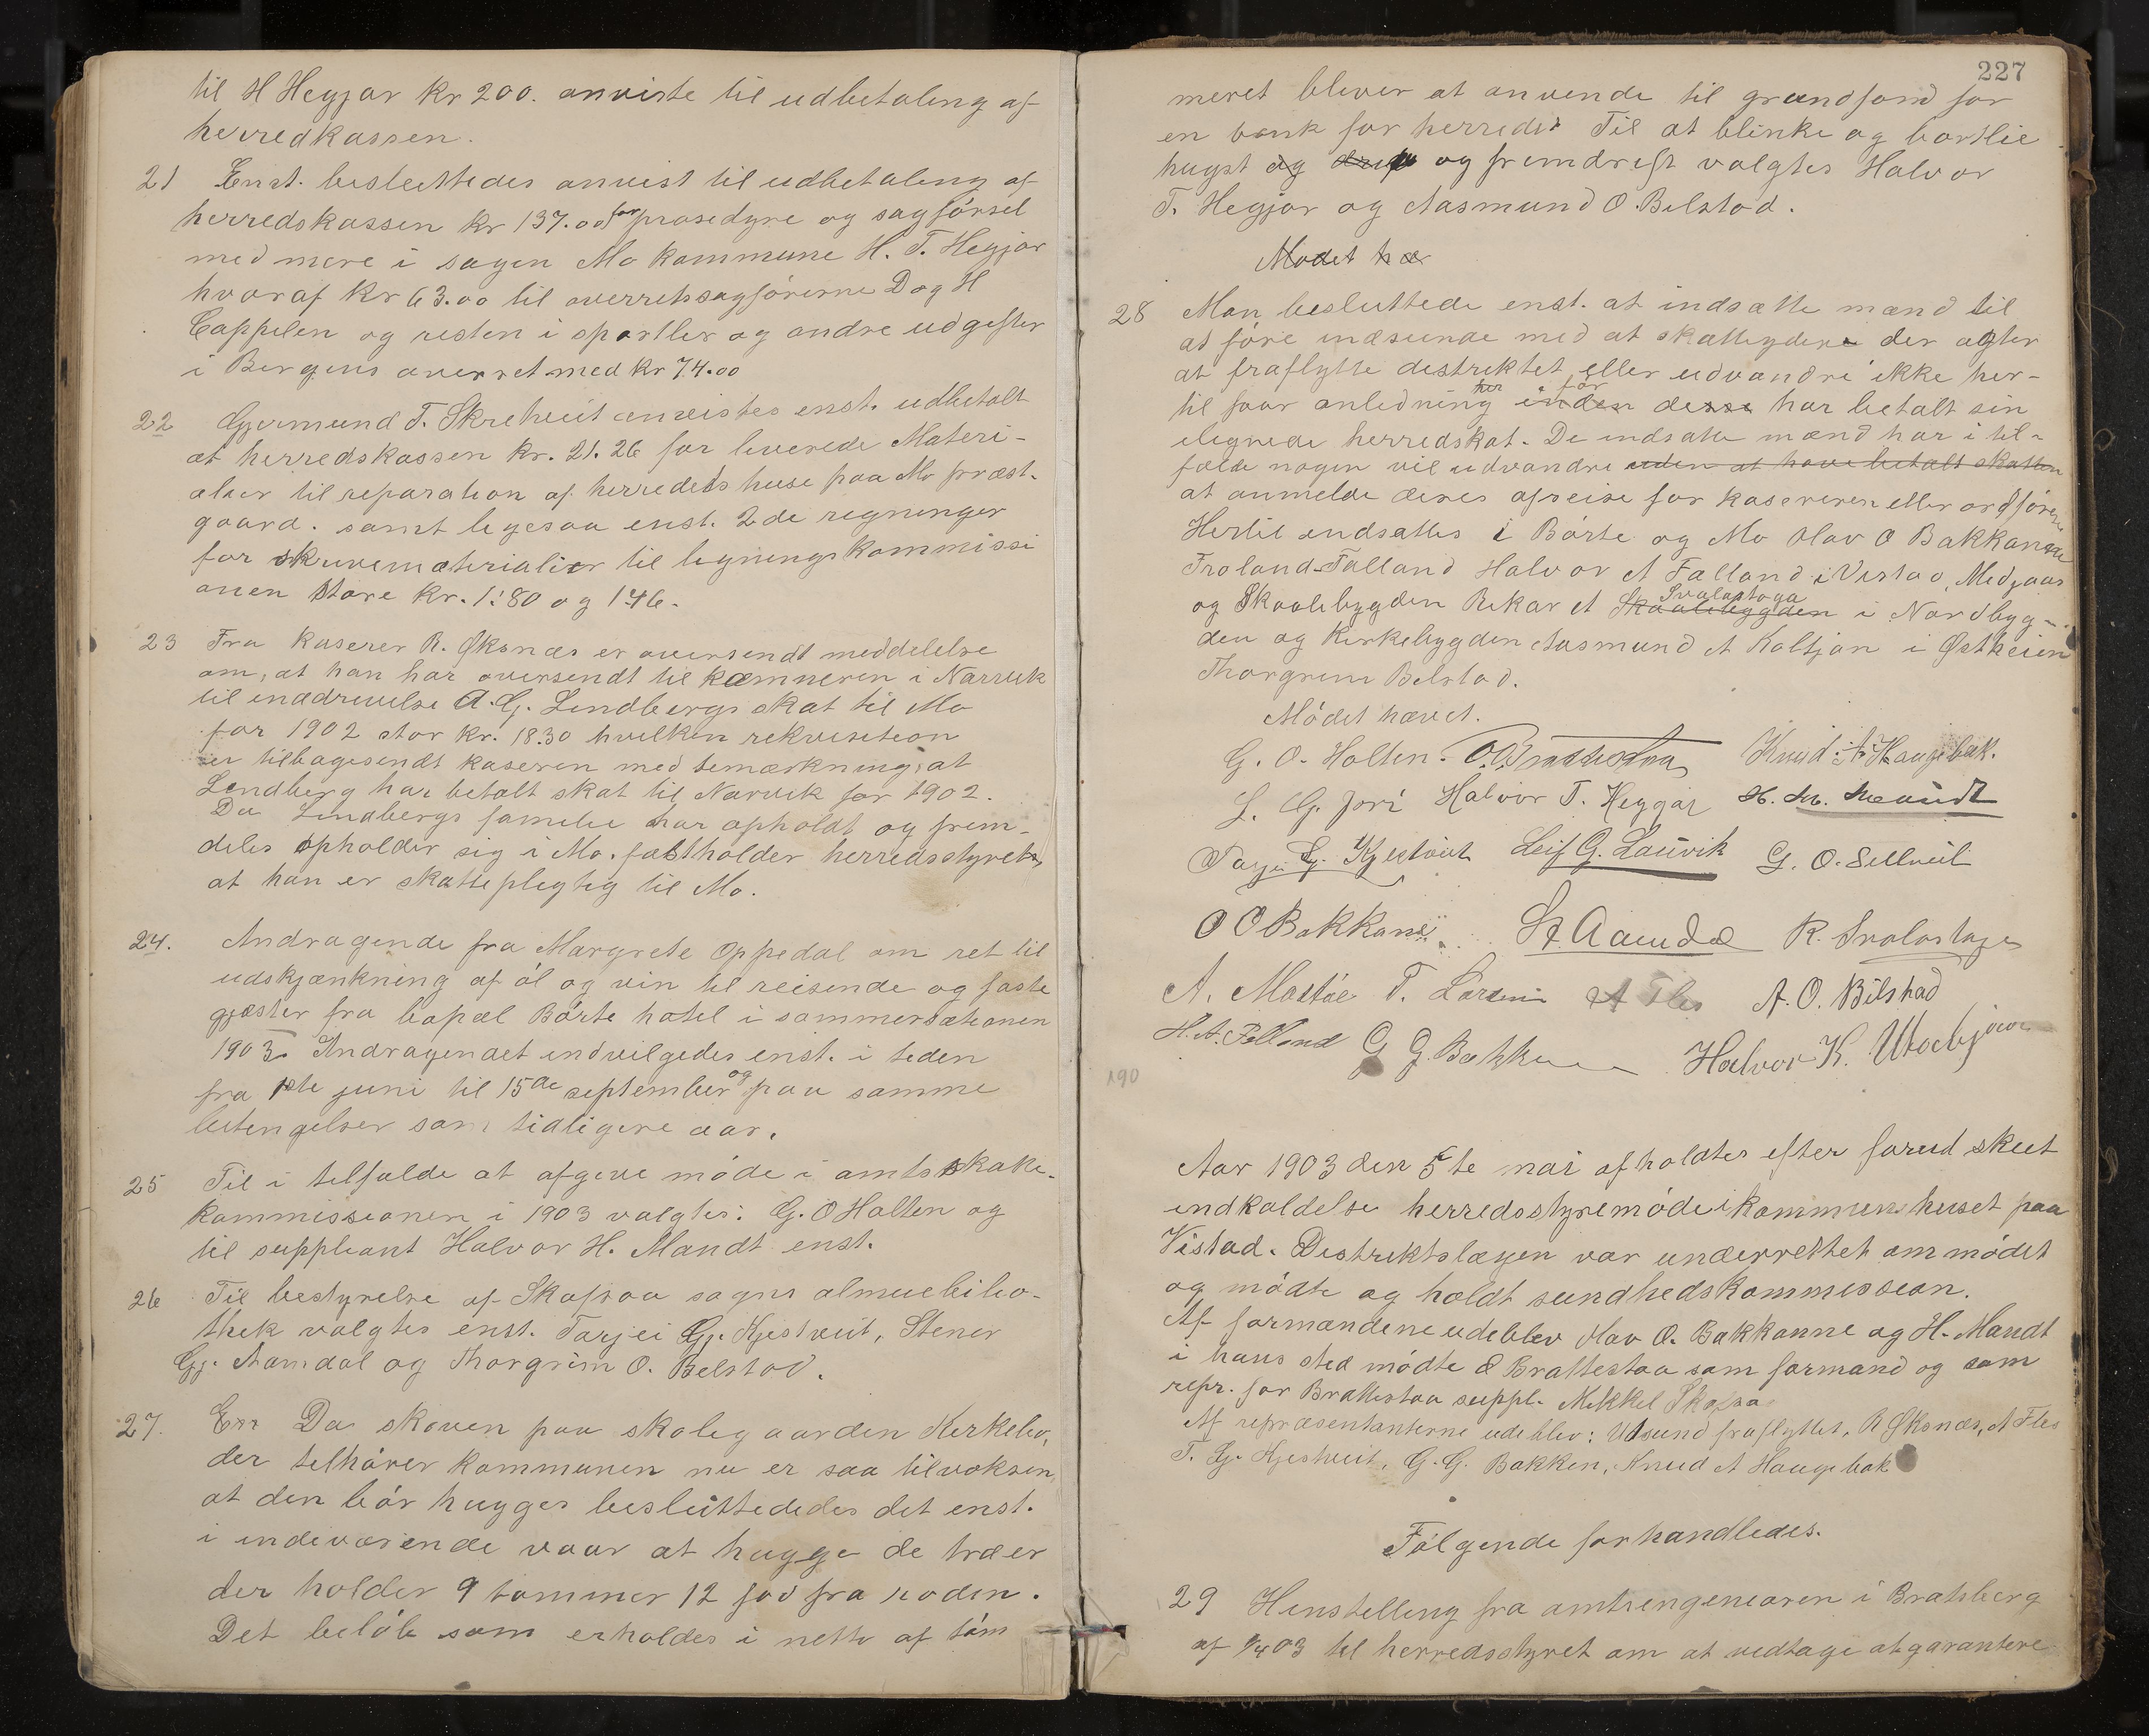 til H Hegjar Kr 200. anviste til udbetaling af
herredkassen.
21 Enst. besluttedes anvist til udbetaling af
herredskassen kr 137.00 for prosedyre og sagførsel
med mere i sagen Mo kommune H. T. Hegjar
hvoraf Kr 63.00 til overretssagførerne D og H
Cappelen og resten i sportler og andre udgifter
i Bergens overret med kr 74.00
22 Gjermund T. Skrehveit anvistes enst. udbetalt
at herredskassen Kr. 21.26 for leverede Materi-
aler til reparation af herredets huse paa Mo præst-
gaard. samt ligesaa enst. 2de regninger
for skrivematerialier til ligningskommissi
onen store Kr. 1.80 og 1.46.
23 Fra kaserer R. Øksnæs er oversendt meddelelse
om, at han har oversendt til kæmneren i Narvik
til inddrivelse A. G. Lindbergs skat til Mo
for 1902 stor Kr. 18.30 hvilken rekvisition
er tilbagesendt kaseren med bemærkning, at
Lindberg har betalt skat til Narvik for 1902.
Da Lindbergs familie har opholdt og frem-
deles opholder sig i Mo. fastholder herredsstyret
at han er skattepligtig til Mo.
24. Andragende fra Margrete Oppedal om ret til
udskjænkning af øl og vin til reisende og faste
gjæster fra lokal Børte hotel i sommersætionen
1903. Andragendet indvilgedes enst. i tiden
fra 1ste juni til 15de september og paa samme
betengelser som tidligere aar.
25 Til i tilfælde at afgive møde i amtsskake-
kommissionen i 1903 valgtes: G. O Holten og
til suppleant Halvor H. Mandt enst.
26 Til bestyrelse af Skafsaa sogns almuebibio-
thek valgtes enst. Tarjei Gj. Kjestveit, Stener
Gj. Aamdal og Thorgrim O. Belstad.
27. Da skoven paa skolegaarden Kirkebø,
der tilhører kommunen nu er saa tilvoksen
at den bør hugges besluttededes det enst.
i indeværende vaar at hugge de træer
der holder 9 tommer 12 fod fra roden.
Det beløb som erholdes i netto af tøm
227
meret blever at anvende til grundfond for
en bank for herredet Til at blinke og bortlie
hugst og drift og fremdrift valgtes Halvor
T. Hegjar og Aasmund O. Belstad.
Modet hæ
28 Man besluttede enst. at indsætte mænd til
at føre indseende med at skatteydere der agter
at fraflytte destriktet eller udvandre ikke her-
til faar anledning her inden før desse har betalt sin
ilignede herredskat. De indsatte mænd har i til-
fælde nogen vil udvandre uden at have betalt skatten
at anmelde deres afreise for kasereren eller ordføreren
Hertil indsattes i Børte og Mo Olav O Bakkane
Froland-Falland Halvor A Falland i Vistad, Midgaar
og Skaalebygden Rikar A Skaalebygden Svalastoga i Nordbyg-
den og Kirkebygden Aasmund A Koltjøn i Østheien
Thorgrim Belstad.
Mødet hævet.
G. O. Holten. O. Brattestaa Knud A Haugebak.
L. G. Jore Halvor T. Heggar H. H. Mandt
Tarjei Gj. Kjestveit Leif G. Lauvik G. O. Sellveit
O O Bakkane St. Aamdal R. Svalastoga
A. Mostøe T. Larsen A Fles A. O. Bilstad
H. A. Felland G G. Bakken Halvor K. Utaabjaar
190
Aar 1903 den 5te mai afholdtes efter forud skeet
indkaldelse herredsstyremøde i kommunehuset paa
Vistad. Distriktslægen var underrettet om mødet
og mødte og holdt sundhedskommission.
Af formændene udeblev Olav O. Bakkanne og H. Mandt
i hans sted mødte O Brattestaa som formand og som
repr. for Brattestaa suppl. Mikkel Skafsa
Af repræsentanterne udeblev: Utsund fraflyttet, R Øksnæs, A Fles
T. Gj. Kjestveit, G. G. Bakken, Knud A Haugebak
Følgende forhandledes.
29 Henstilling fra amtsingeniøren i Bratsberg
af 1/4 03 til herredsstyret om at vedtage at garantere